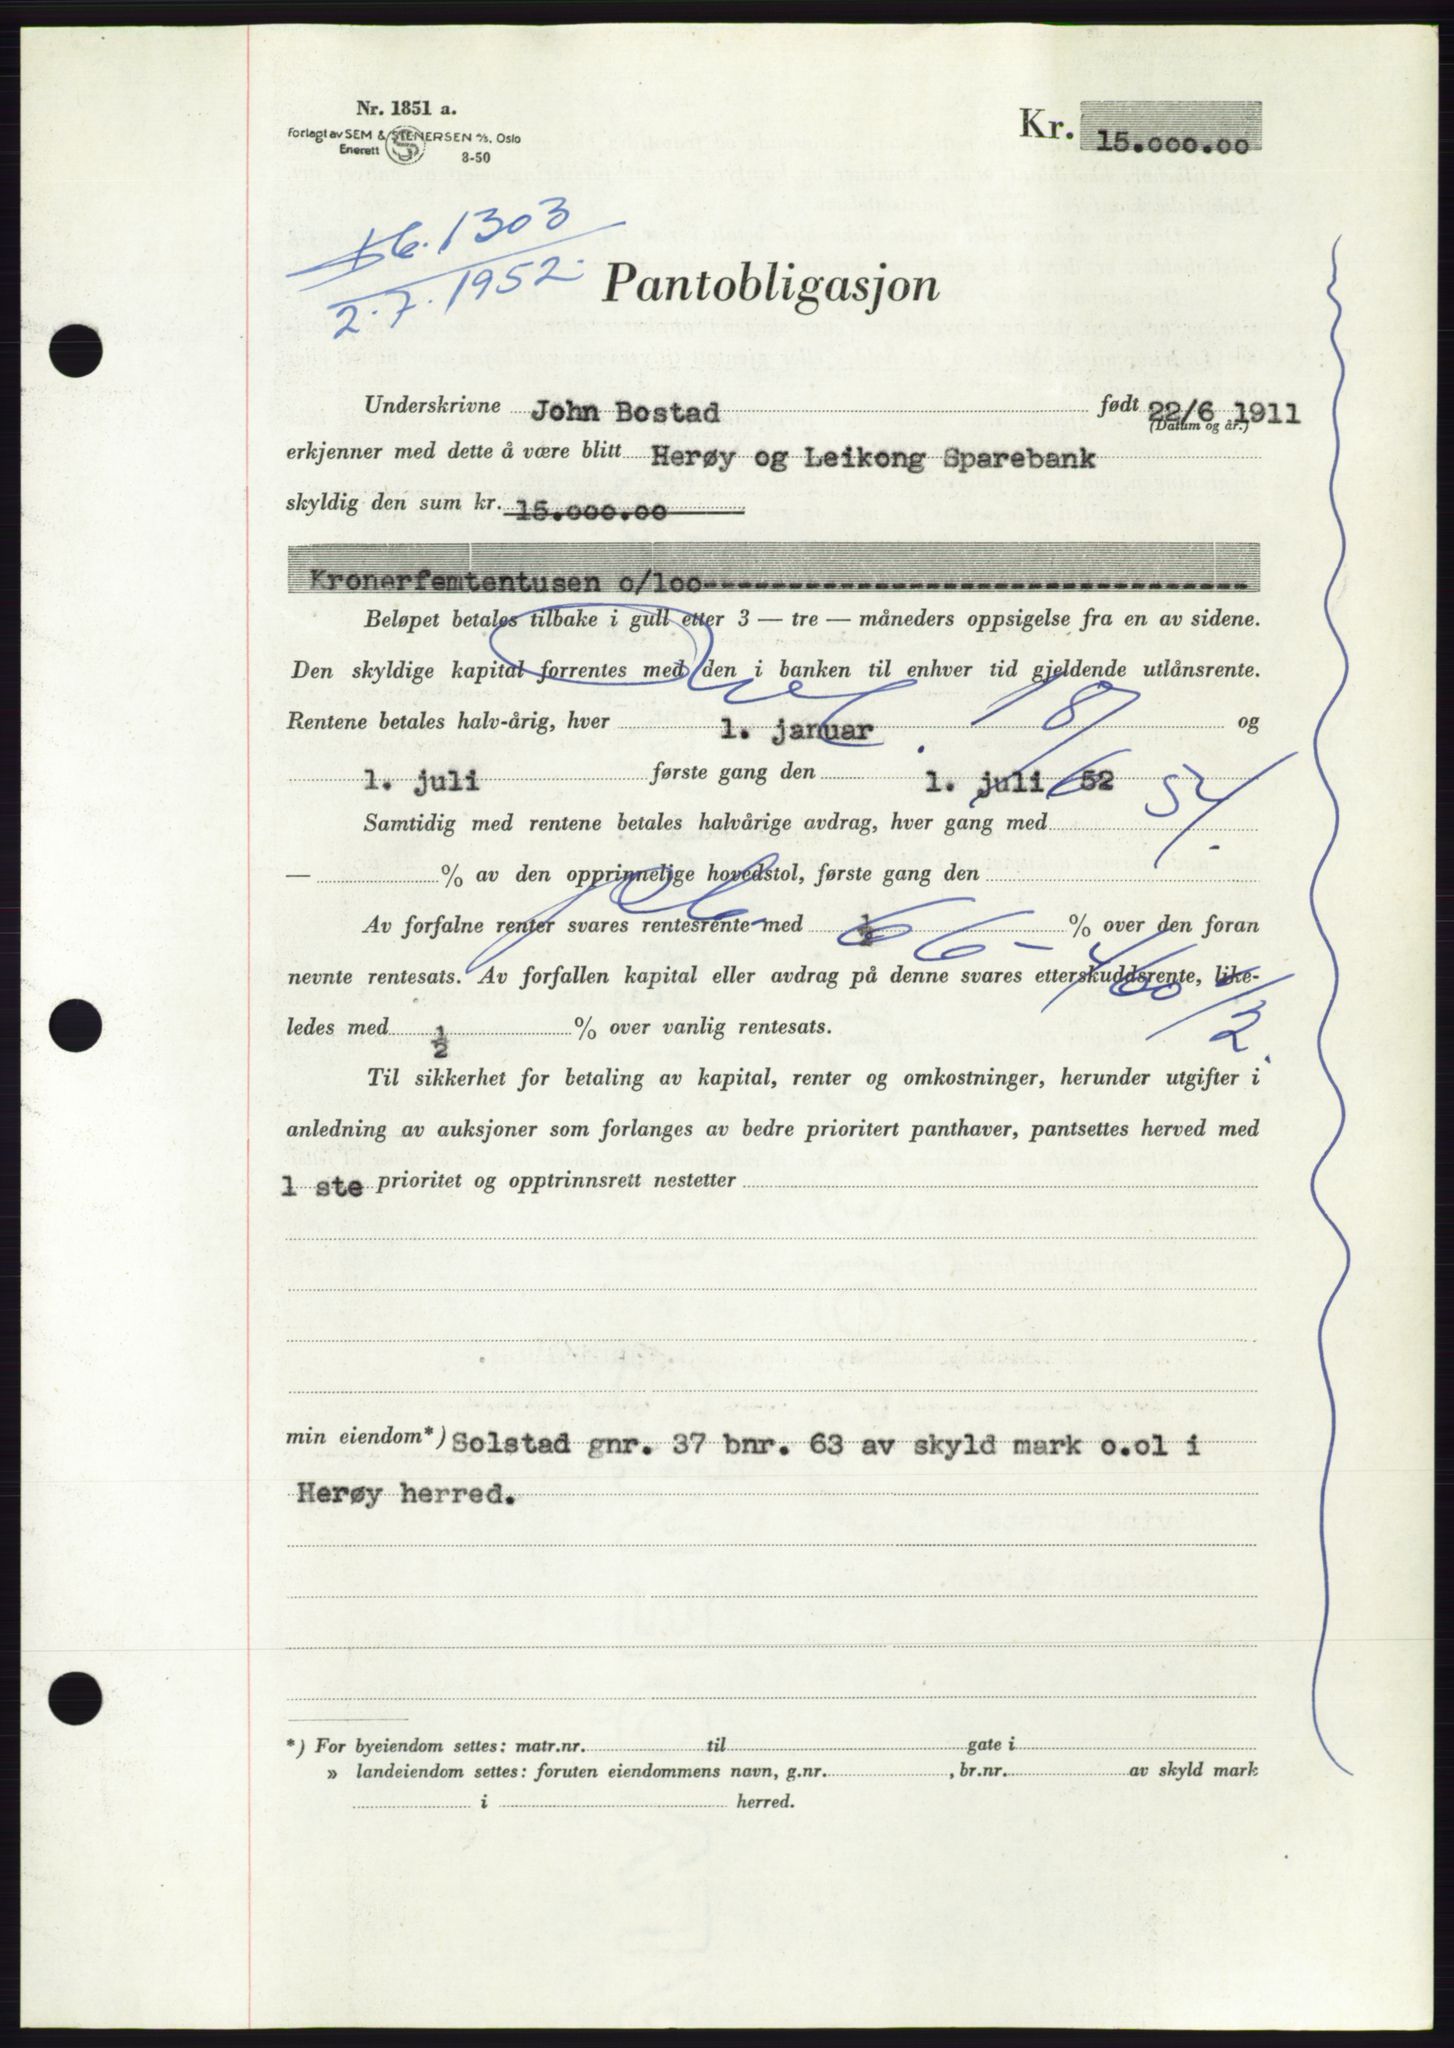 Nr. 1851 a.
Forlagt av SEM & STENERSEN A/S, Oslo
Enerett
8-50
Kr. 15.000.00
1303
2.7.1952.
Pantobligasjon
Underskrivne John Bostad født 22/6 1911
(Datum og år.)
erkjenner med dette å være blitt Herøy og Leikong Sparebank
skyldig den sum kr. 15.000.00
Kronerfemtentusen o/loo-----------------------------
Beløpet betales tilbake i gull etter 3 — tre — måneders oppsigelse fra en av sidene.
Den skyldige kapital forrentes med den i banken til enhver tid gjeldende utlånsrente.
Rentene betales halv-årig, hver 1. januar og
1. juli første gang den 1. juli 52
Samtidig med rentene betales halvårige avdrag, hver gang med
— % av den opprinnelige hovedstol, første gang den
Av forfalne renter svares rentesrente med ½ % over den foran
nevnte rentesats. Av forfallen kapital eller avdrag på denne svares etterskuddsrente, like-
ledes med ½ % over vanlig rentesats.
Til sikkerhet for betaling av kapital, renter og omkostninger, herunder utgifter i
anledning av auksjoner som forlanges av bedre prioritert panthaver, pantsettes herved med
1 ste prioritet og opptrinnsrett nestetter
min eiendom*) Solstad gnr. 37 bnr. 63 av skyld mark o.ol i
Herøy herred.
*) For byeiendom settes: matr.nr. til gate i
» landeiendom settes: foruten eiendommens navn, g.nr. , br.nr. av skyld mark
i herred.